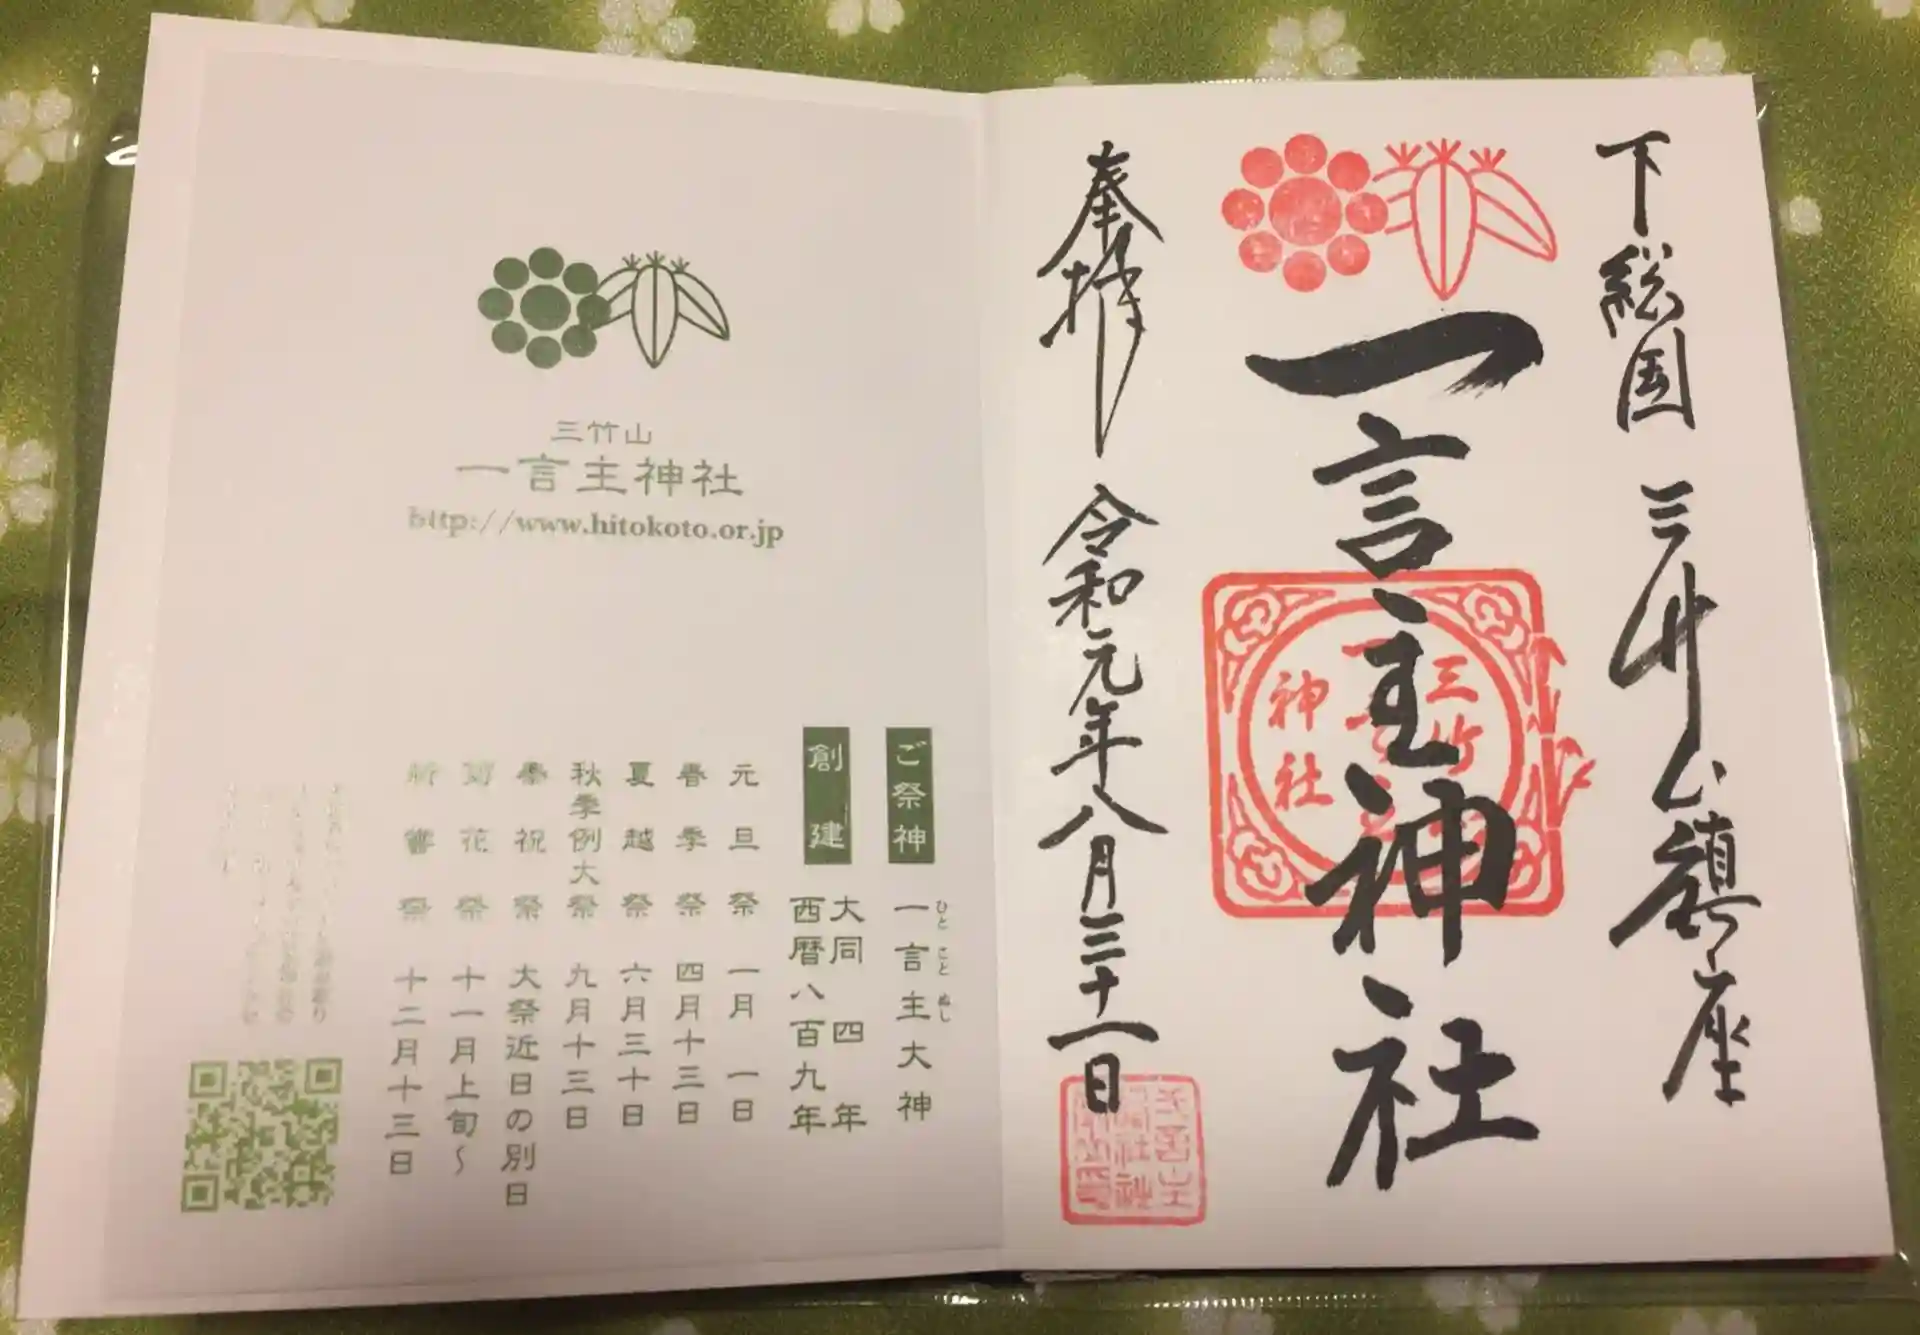 下総国 三竹山鎮座
一言主神社
三竹
神社
奉拝 令和元年八月三十一日
三竹山
一言主神社
http://www.hitokoto.or.jp
ご祭神 一言主大神
ひと こと ぬし
創建 大同四年
西暦八百九年
元旦祭 一月一日
春季祭 四月十三日
夏越祭 六月三十日
秋季例大祭 九月十三日
奉祝祭 大祭近日の別日
菊花祭 十一月上旬〜
新嘗祭 十二月十三日